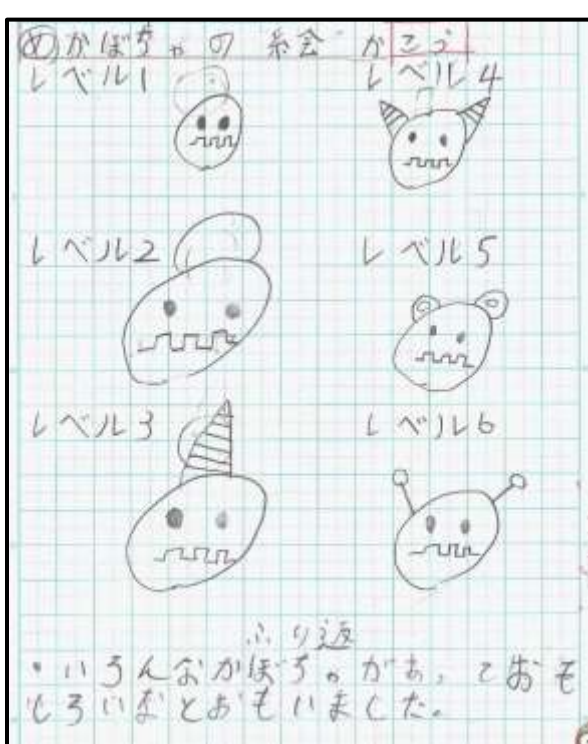 めかぼちゃの絵がこう
レベル1
レベル2
レベル3
レベル4
レベル5
レベル6
ふり返
・いろんなかぼちゃがあっておも
しろいなとおもいました。